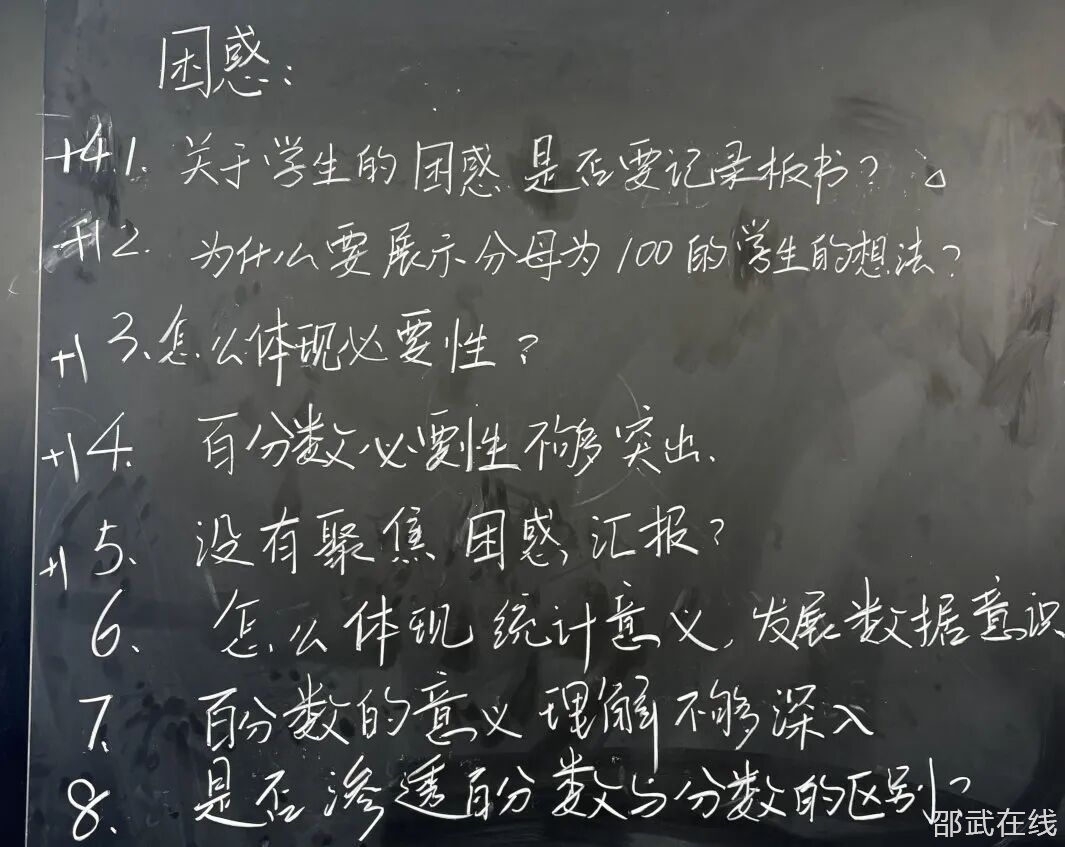 困惑:
+4 1. 关于学生的困惑是否要记录板书?
+1 2. 为什么要展示分母为100的学生的想法?
+1 3、怎么体现必要性?
+1 4. 百分数必要性不够突出.
+1 5、没有聚焦困惑汇报?
6、怎么体现统计意义,发展数据意识
7. 百分数的意义理解不够深入
8、是否渗透百分数与分数的区别?
邵武在线